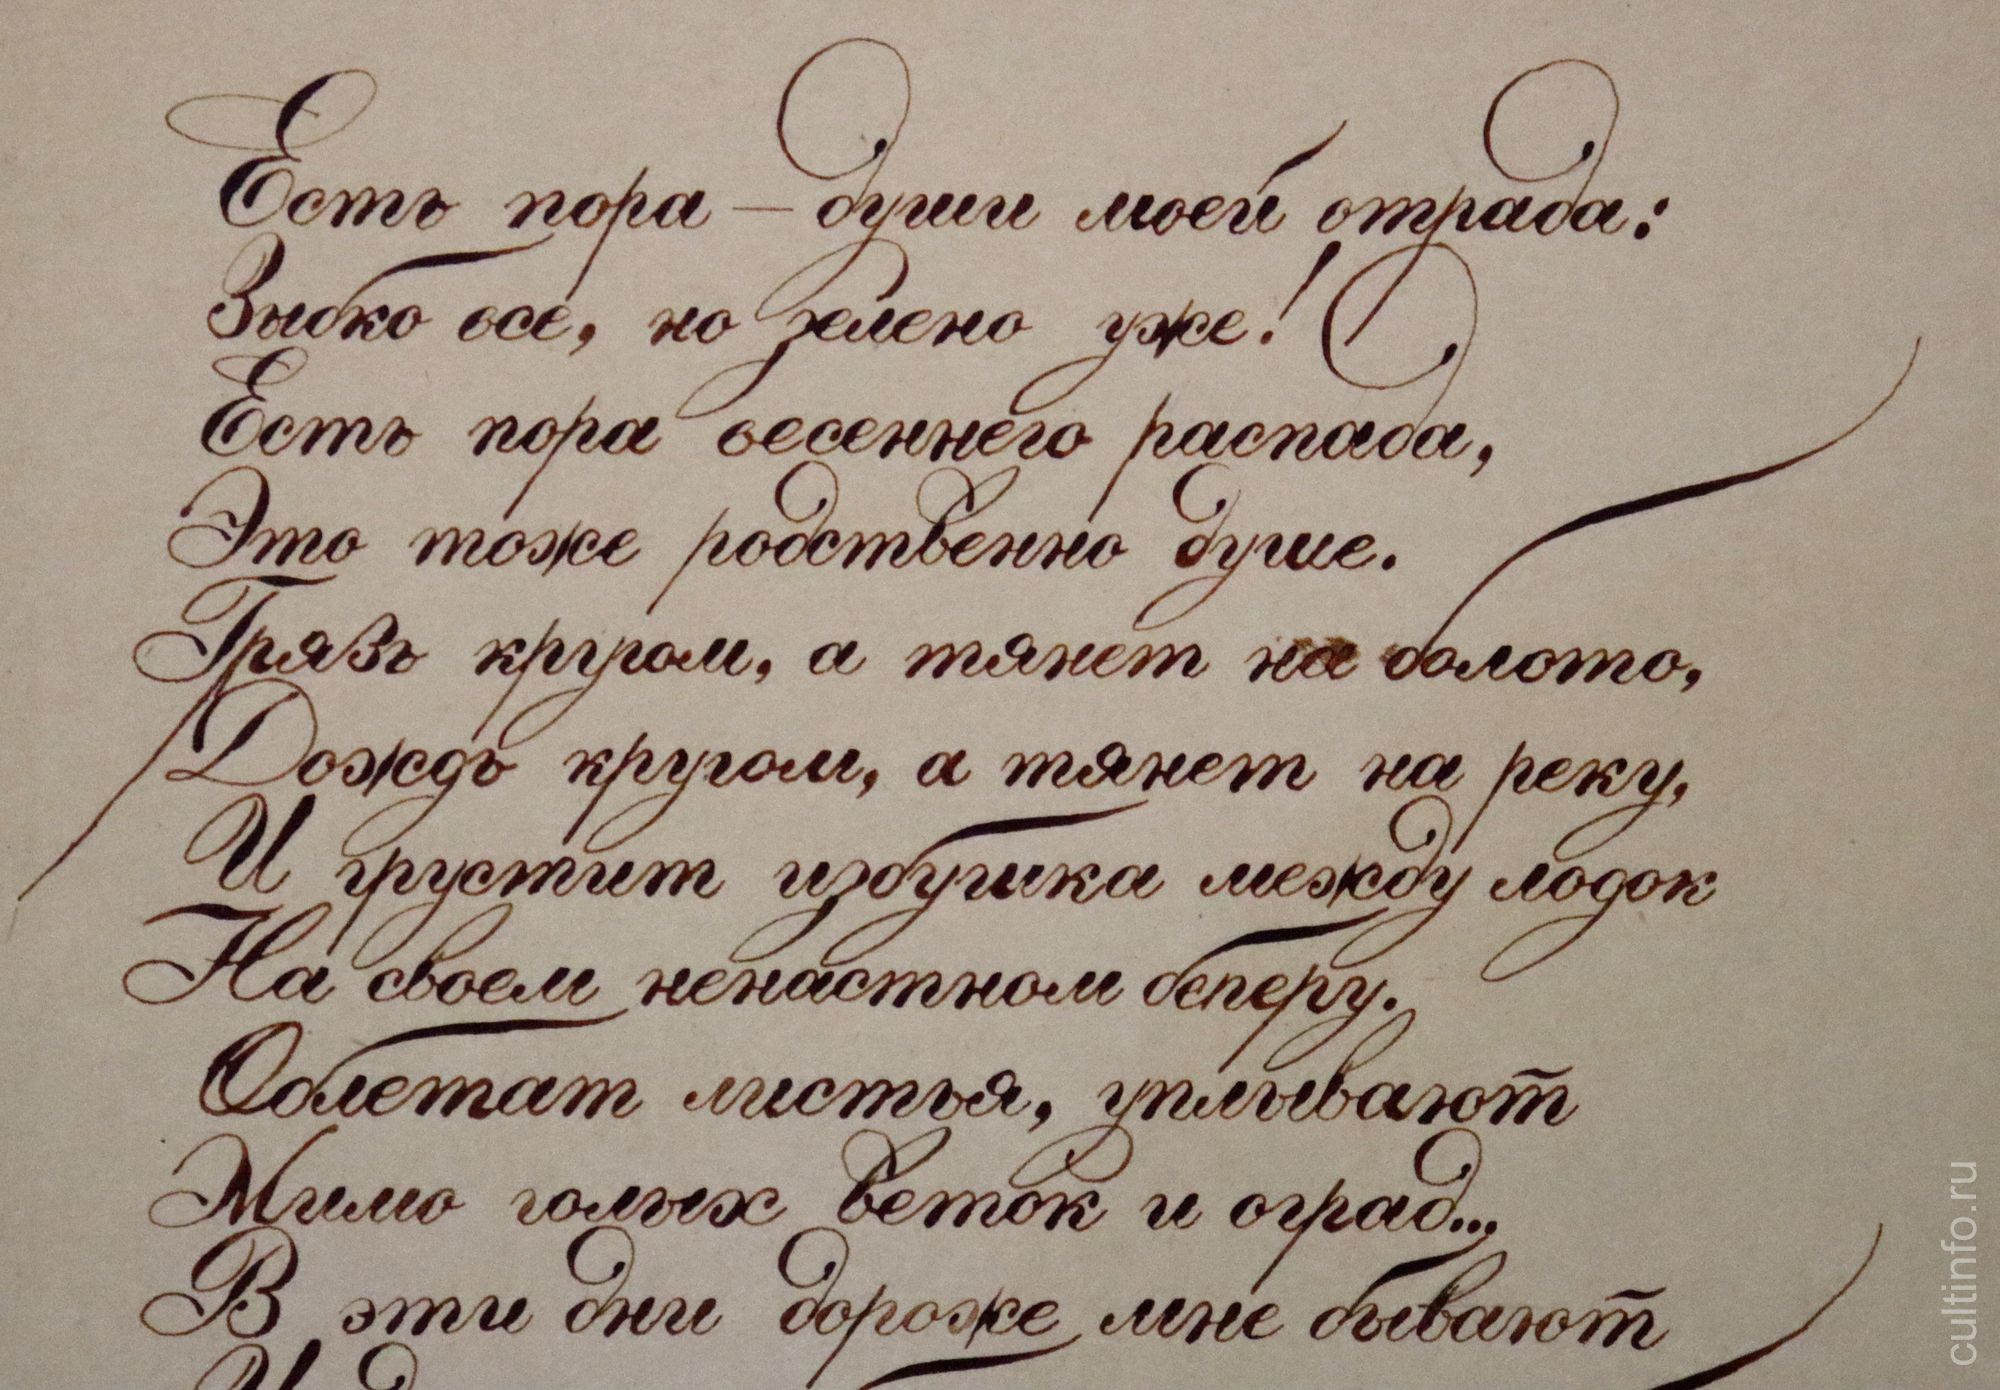 Есть пора – души моей отрада:
Зыбко все, но зелено уже!
Есть пора весеннего распада,
Это тоже родственно душе.
Грязь кругом, а тянет на болото,
Дождь кругом, а тянет на реку,
И грустит избушка между лодок
На своем ненастном берегу.
Облетают листья, уплывают
Мимо голых веток и оград...
В эти дни дороже мне бывают
cultinfo.ru